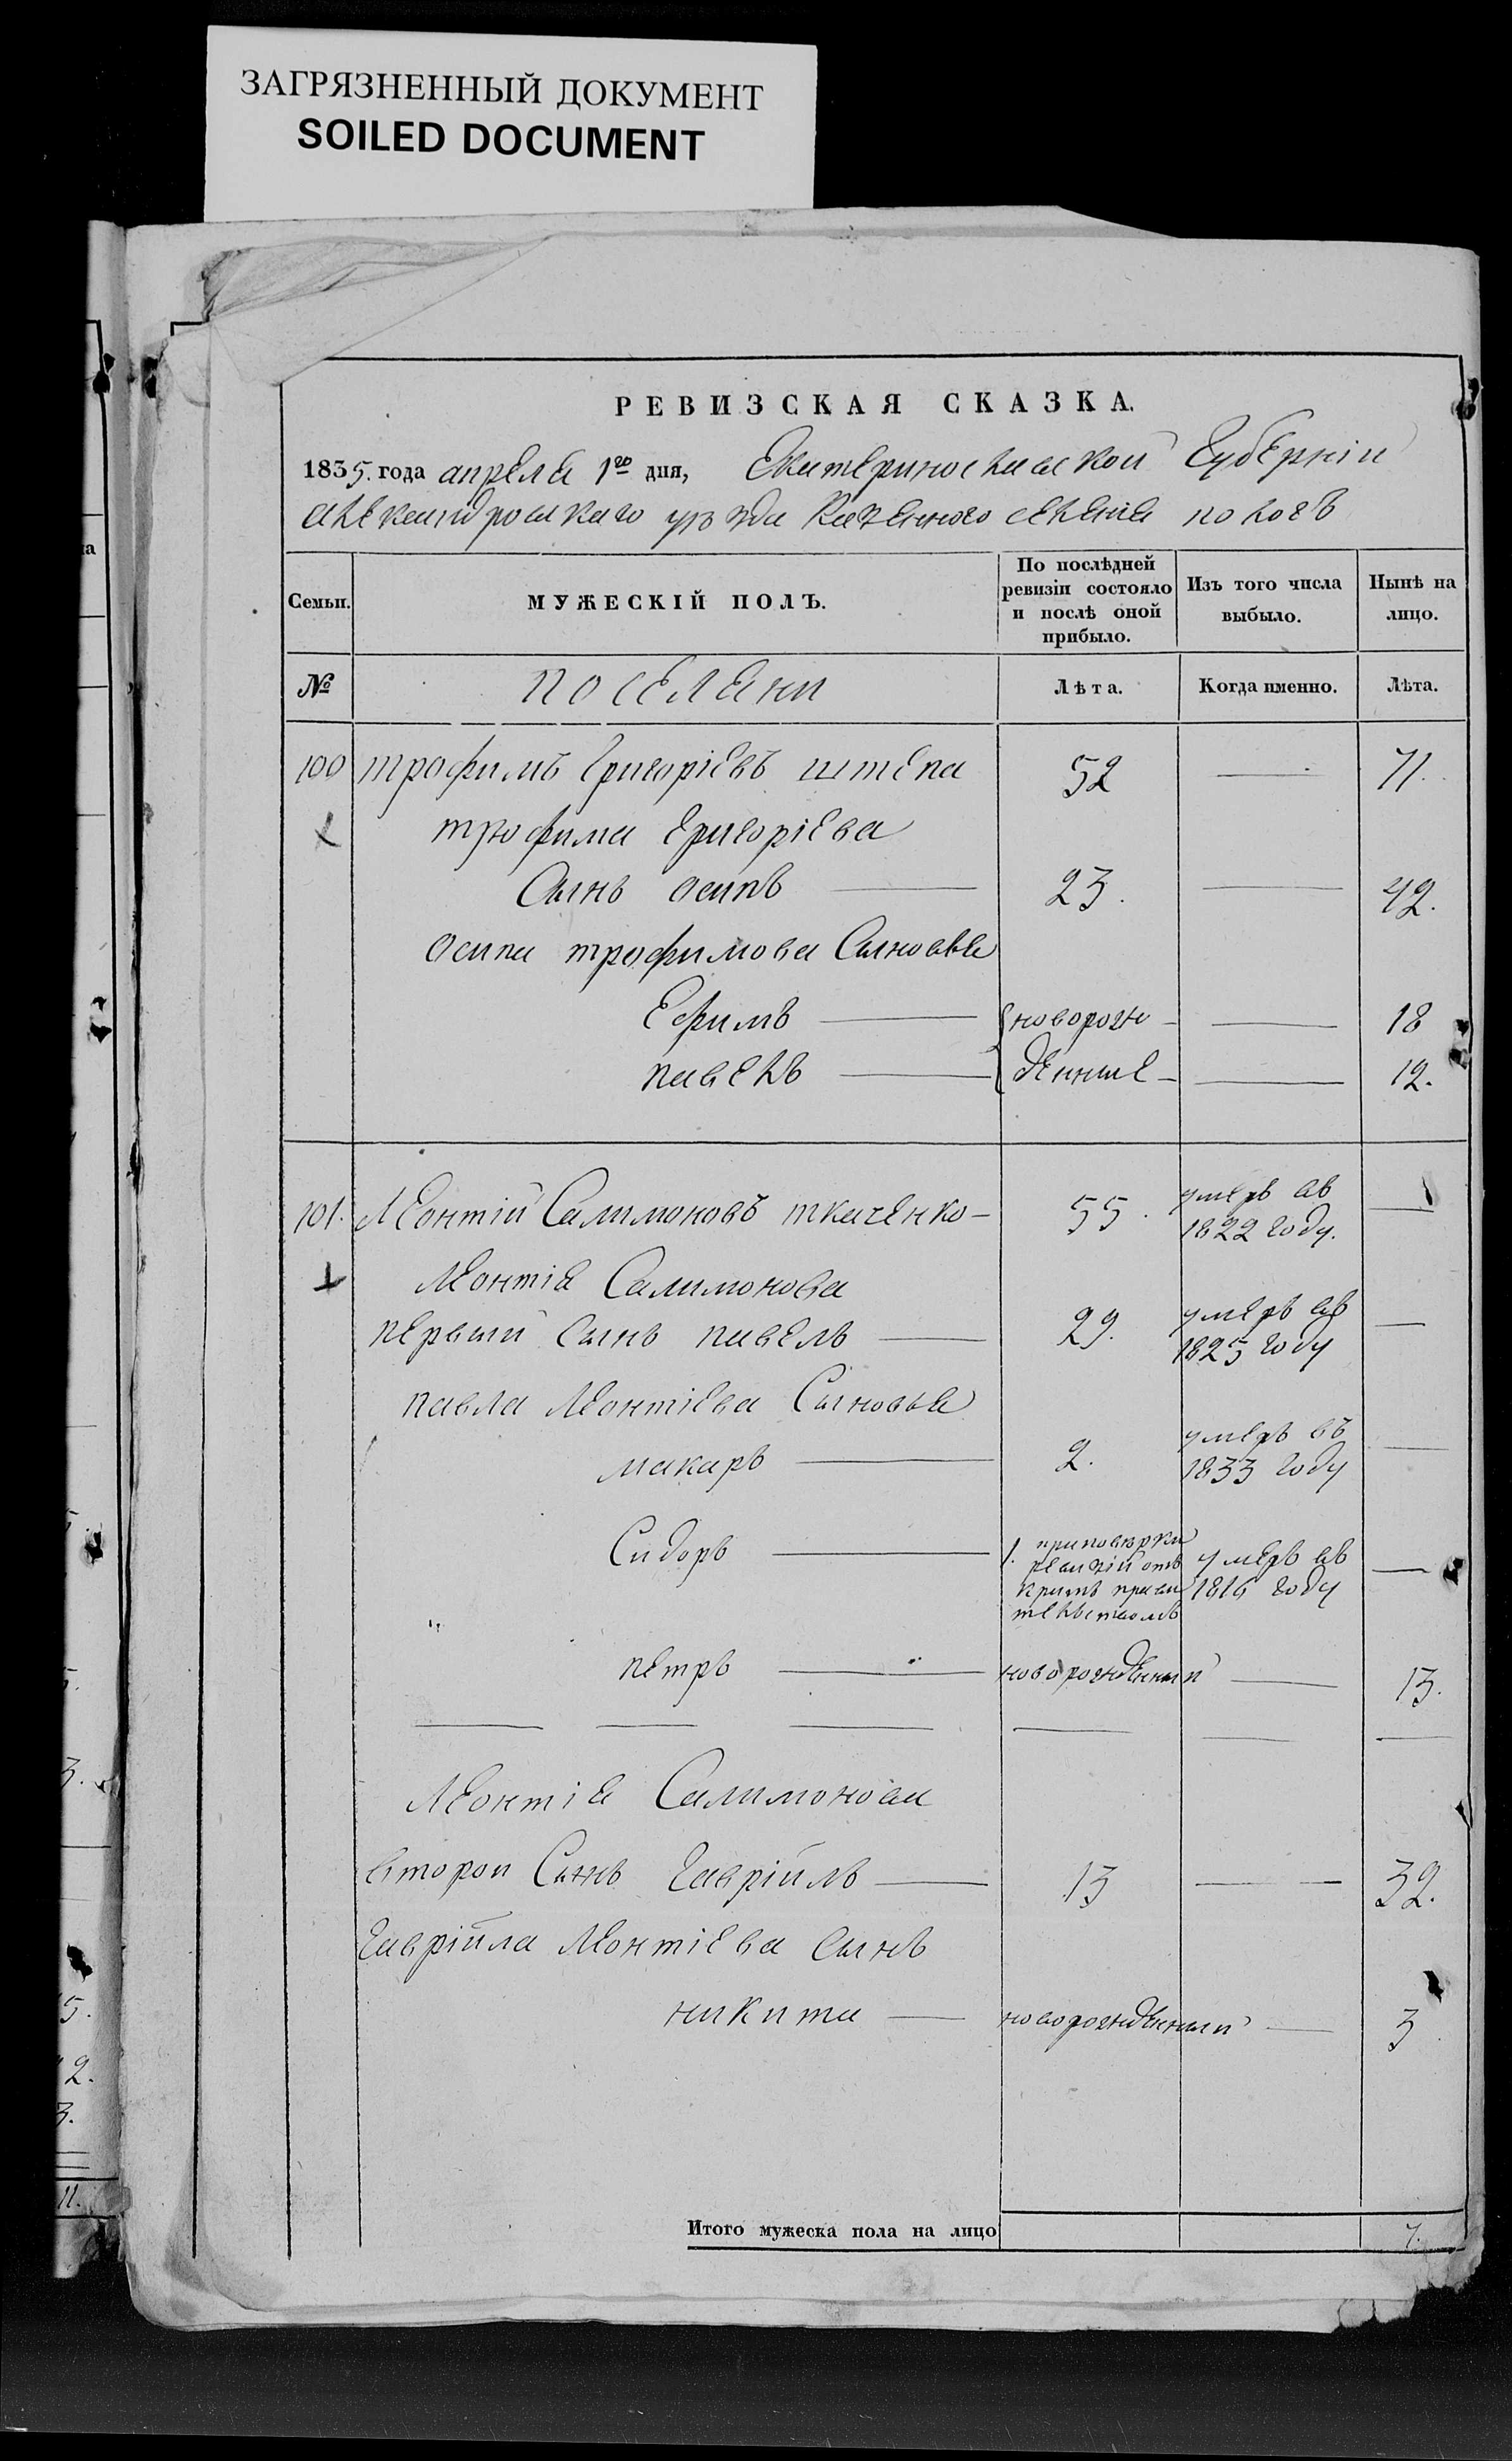 ЗАГРЯЗНЕННЫЙ ДОКУМЕНТ
SOILED DOCUMENT
РЕВИЗСКАЯ СКАЗКА.
1835. года апреля 1го дня, Екатеринославской Губернiи
александровскаго уѣзда Казенного селенiя пологъ
Семьи.
МУЖЕСКIЙ ПОЛЪ.
По послѣдней ревизiи состояло и послѣ оной прибыло.
Изъ того числа выбыло.
Нынѣ на лицо.
№ поселяни Лѣта. Когда именно. Лѣта.
100 трофимъ Григорiевъ штепа 52 — 71.
трофима Григорiева
Сынъ осипъ — 23. — 42.
Осипа трофимова Сыновья
Ефимъ — новорож — 18
павелъ — денние — 12.
101. Леонтiй Салимоновъ ткаченко — 55. умеръ въ 1822 году. —
Леонтiя Салимонова
первый Сынъ павелъ — 29. умеръ въ 1825 году —
павла Леонтiева Сыновья
макаръ — 2. умеръ въ 1833 году —
Сидоръ — 1. приповѣрки ревизiй умеръ въ 1816 году —
петръ — новорожденный — 13.
Леонтiя Салимонова
второй Сынъ Гаврiилъ — 13 — 32.
Гаврiйла Леонтiева Сынъ
никита — новорожденный — 3
Итого мужеска пола на лицо 7.